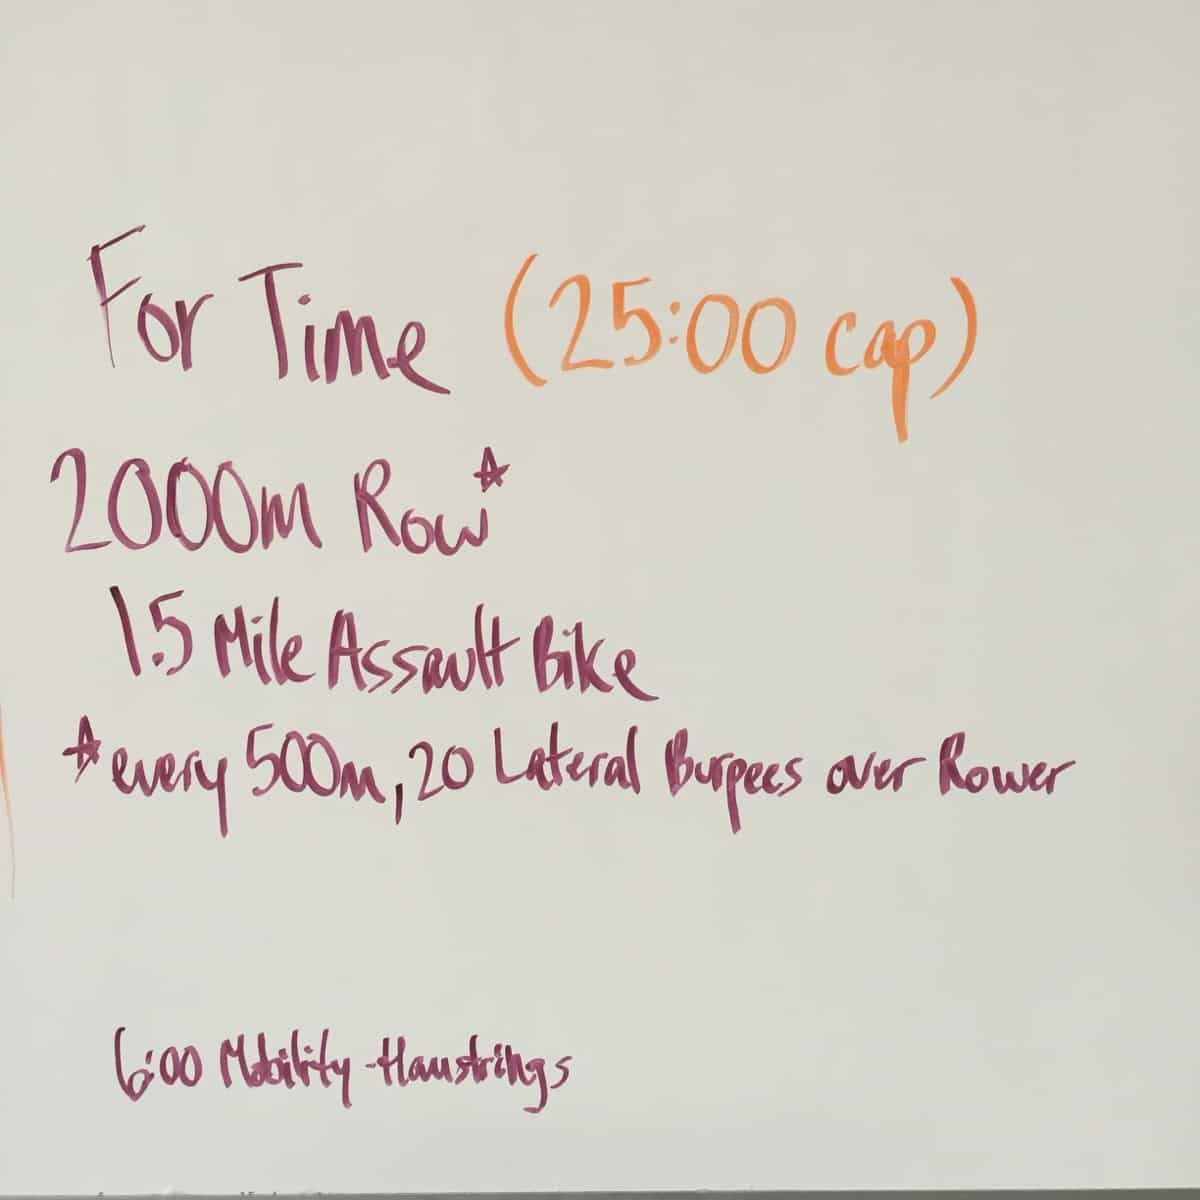 For Time (25:00 cap)
2000m Row☆
1.5 Mile Assault Bike
☆ every 500m, 20 Lateral Burpees over Rower
6:00 Mobility - Hamstrings